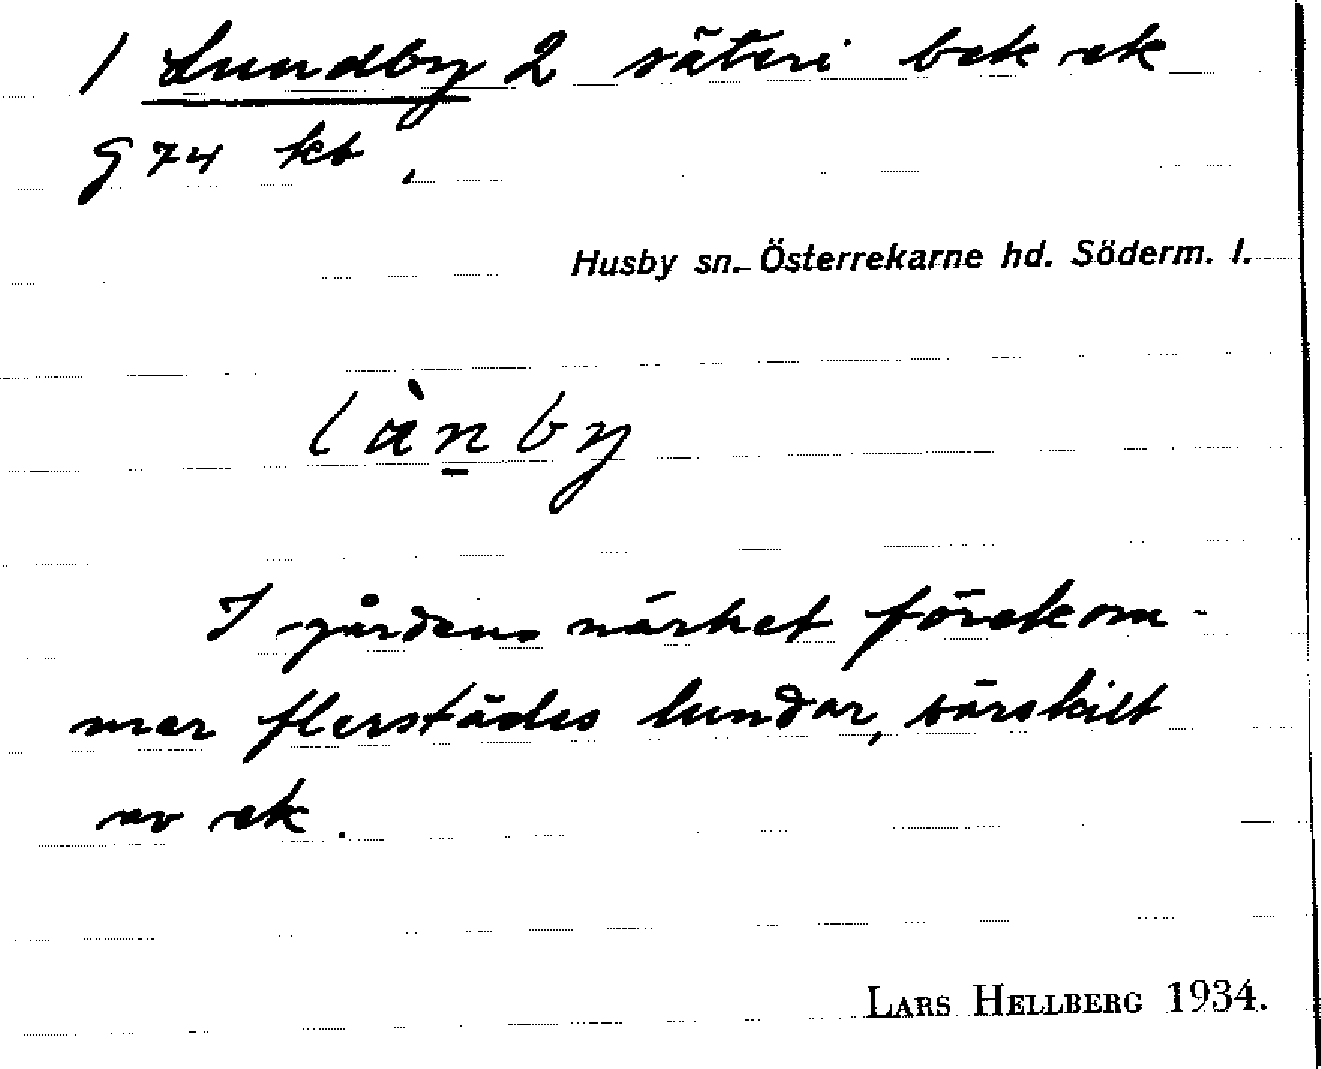 1 Lundby 2 säteri bek ek
G 74 kb.
Husby sn. Österrekarne hd. Söderm. l.
lànby
I gårdens närhet förekom-
mer flerstädes lundar, särskilt
av ek.
LARS HELLBERG 1934.